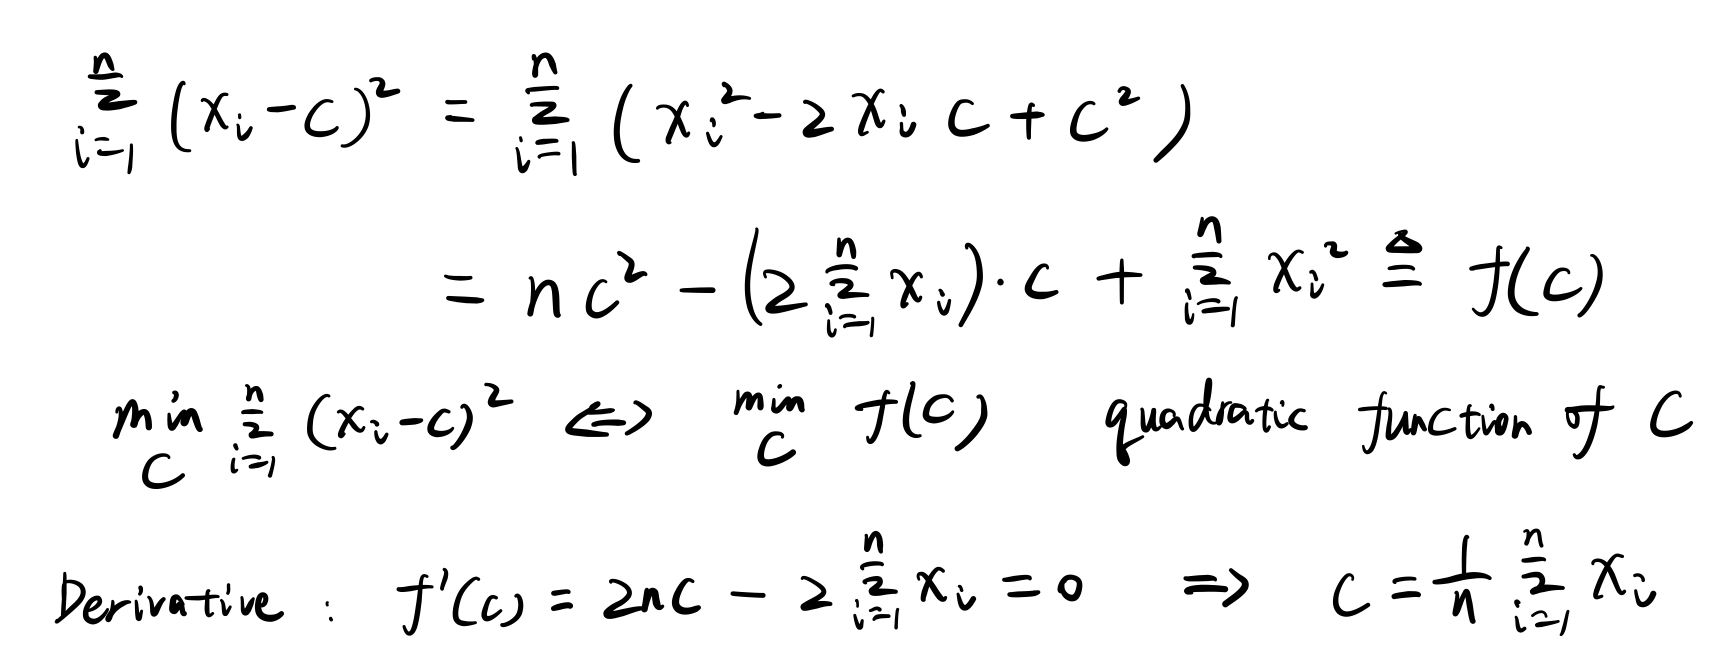 $\sum_{i=1}^{n} (x_i - c)^2 = \sum_{i=1}^{n} (x_i^2 - 2 x_i c + c^2)$
$= n c^2 - \left(2 \sum_{i=1}^{n} x_i\right) \cdot c + \sum_{i=1}^{n} x_i^2 \triangleq f(c)$
$\min_{c} \sum_{i=1}^{n} (x_i - c)^2 \Leftrightarrow \min_{c} f(c)$ quadratic function of c
Derivative : $f'(c) = 2nc - 2 \sum_{i=1}^{n} x_i = 0 \Rightarrow c = \frac{1}{n} \sum_{i=1}^{n} x_i$